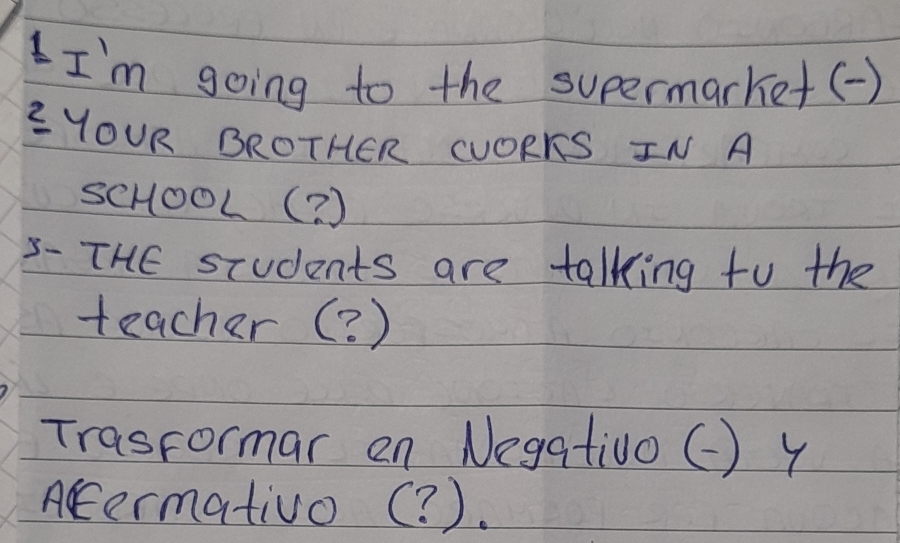 1 I'm going to the supermarket (-)
2- YOUR BROTHER WORKS IN A
SCHOOL (?)
3- THE students are talking tu the
teacher (?)
Trasformar en Negativo (-) y
Afermativo (?).